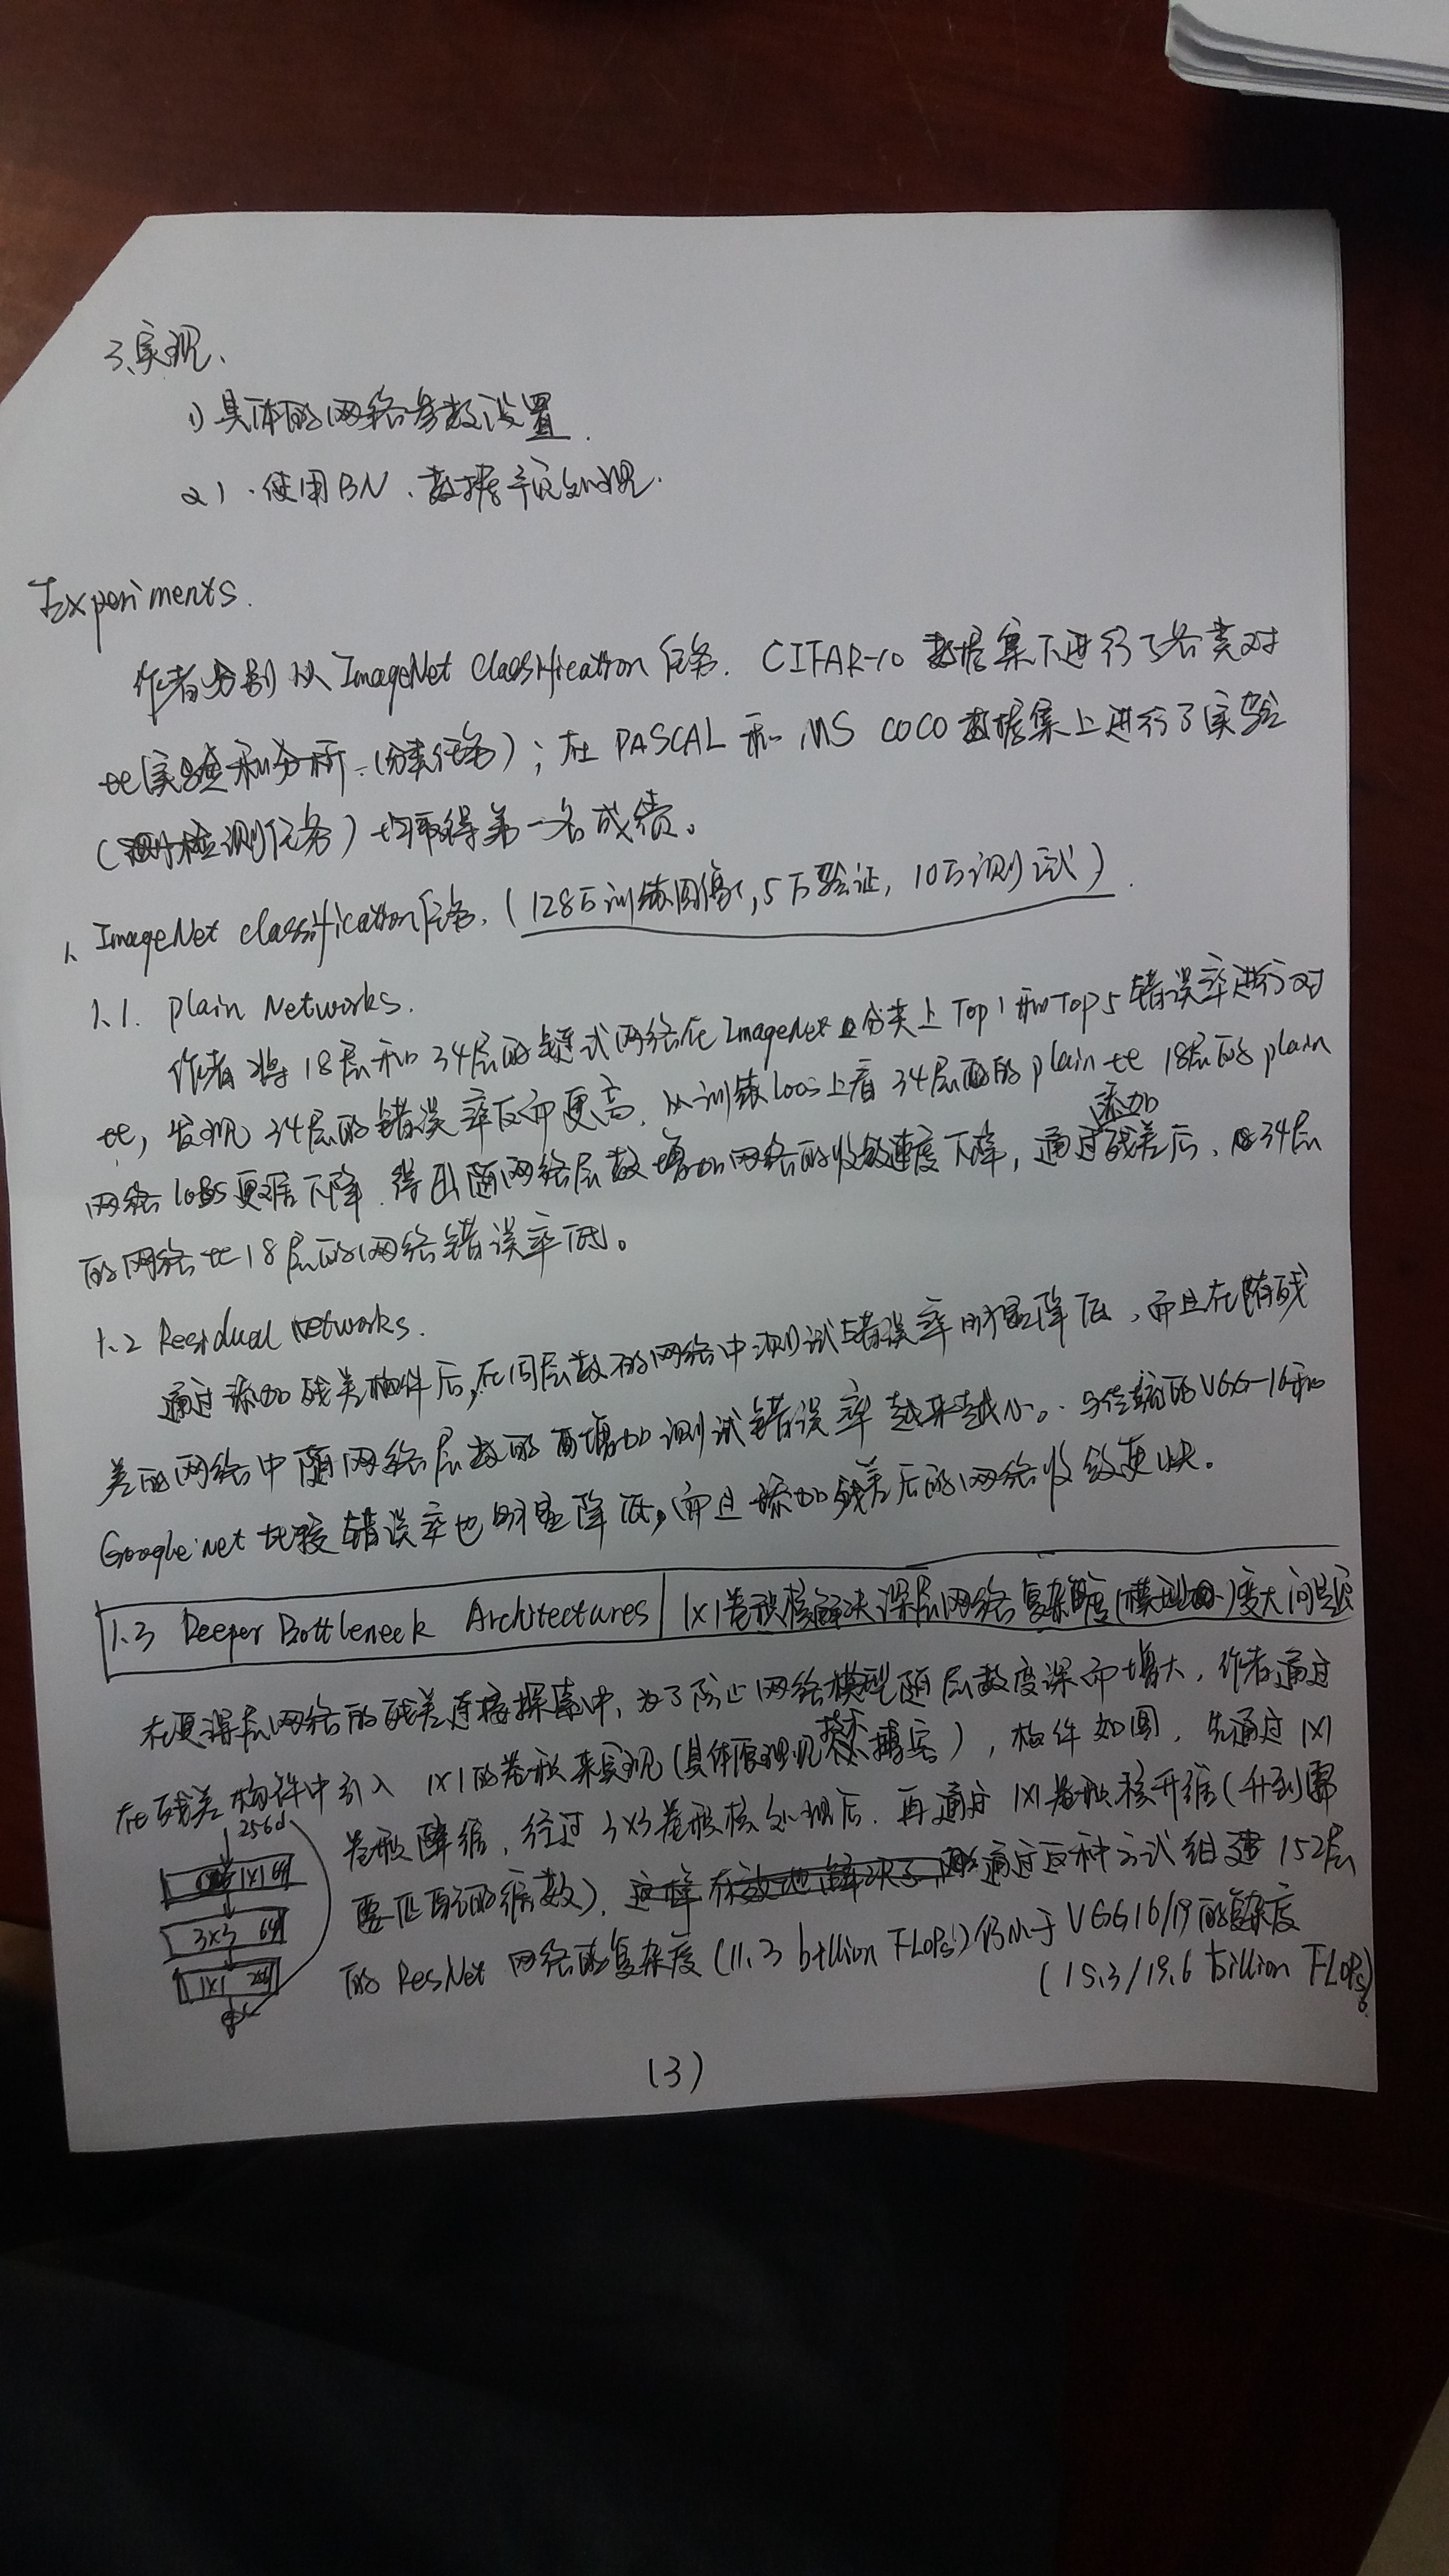 3、实现、
1) 具体的网络参数设置.
2) 、使用BN、数据预处理.
Experiments.
作者分别从ImageNet Classification任务. CIFAR-10 数据集下进行了各类对
比实验和分析.(分类任务);在 PASCAL 和 MS COCO 数据集上进行了实验
(检测任务)均取得第一名成绩。
1、ImageNet classification任务、(128万训练图像,5万验证,10万测试).
1.1. plain Networks.
作者将18层和34层的链式网络在ImageNet分类上Top1和Top5错误率进行对
比,发现34层的错误率反而更高. 从训练loss上看34层的plain比18层的plain
添加
网络loss更难下降.得出随网络层数增加网络的收敛速度下降,通过残差后、34层
的网络比18层的网络错误率低。
1.2 Residual networks.
通过添加残差构件后,在同层数的网络中测试错误率明显降低,而且在随残
差的网络中随网络层数的增加测试错误率越来越小。与传统的VGG-16和
Googlenet比较错误率也明显降低,而且添加残差后的网络收敛更快。
1.3 Deeper Bottleneck Architectures | 1×1卷积核解决深层网络复杂度(模型)变大问题
在更深层网络的残差连接探索中,为了防止网络模型随层数变深而增大,作者通过
在残差构件中引入 1×1的卷积来实现(具体原理见博客),构件如图,先通过1×1
256d
卷积降维,经过3×3卷积核处理后.再通过1×1卷积核升维(升到需
1×1 64
要匹配的维数).通过这种方式组建152层
3×3 64
的ResNet 网络的复杂度(11.3 billion FLOPs)仍小于VGG16/19的复杂度
1×1 256
(15.3/19.6 billion FLOPs)。
(3)